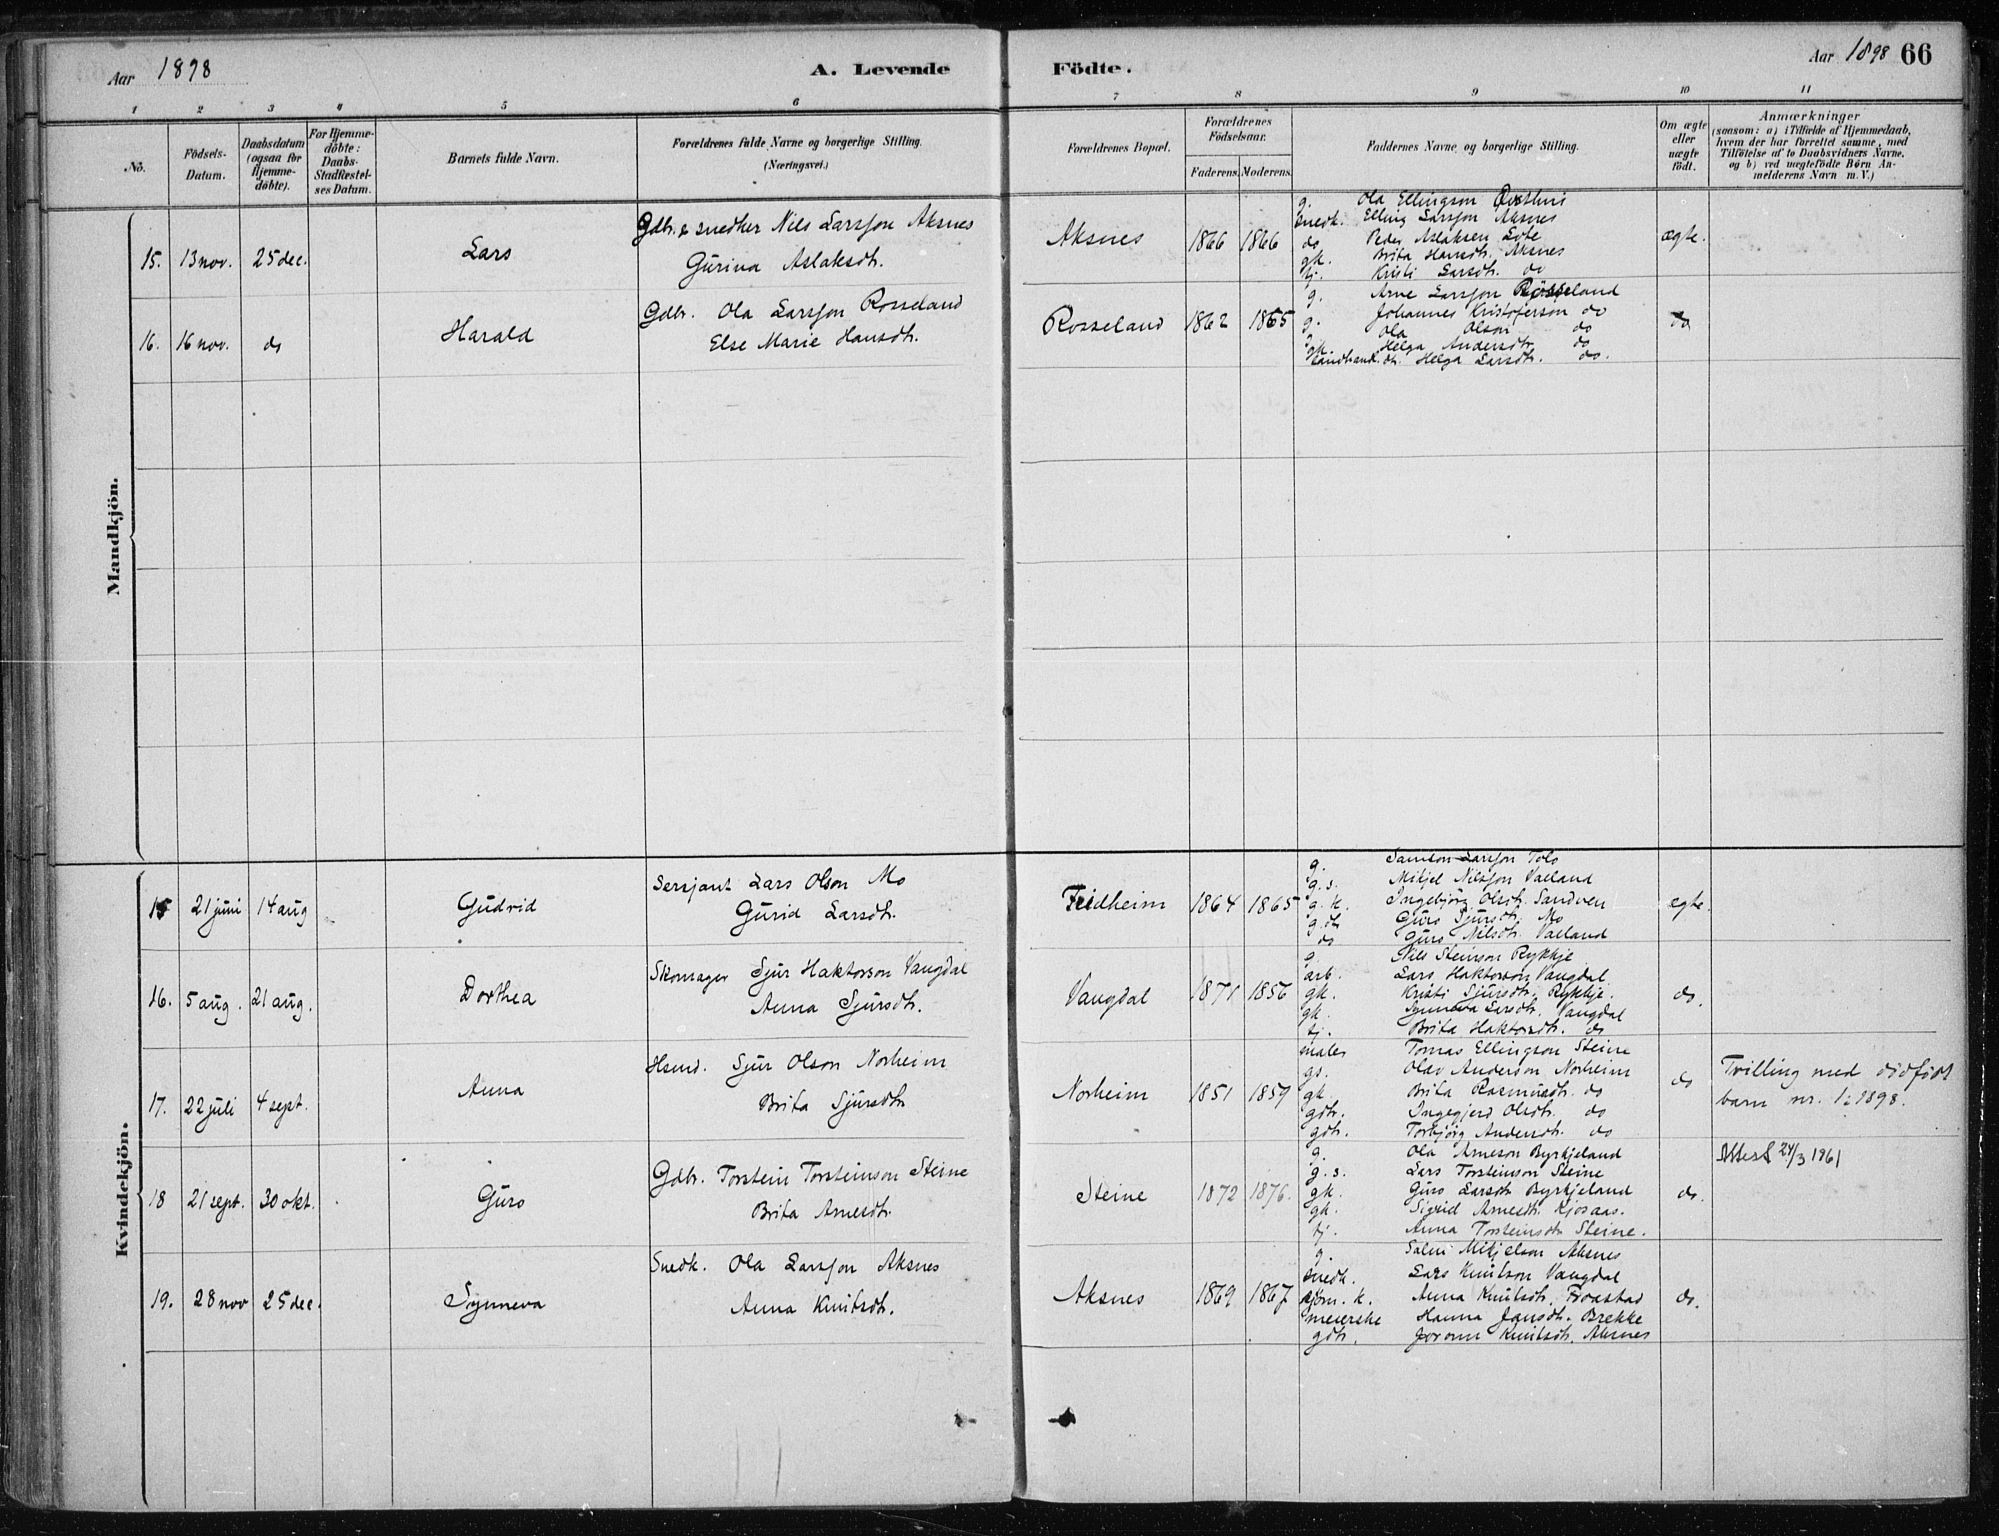 Aar 1898
A. Levende Födte.
Aar 1898 66
1 2 3 4 5 6 7 8 9 10 11
No.
Födsels-Datum.
Daabsdatum (ogsaa for Hjemmedöbte).
For Hjemmedöbte: Daabs-Stadfæstelses Datum.
Barnets fulde Navn.
Forældrenes fulde Navne og borgerlige Stilling.
(Næringsvei.)
Forældrenes Bopæl.
Forældrenes Födselsaar.
Faderens. Moderens.
Faddernes Navne og borgerlige Stilling.
Om ægte eller uægte födt.
Anmærkninger
(saasom: a) i Tilfælde af Hjemmedaab, hvem der har forrettet samme, med Tilföielse af to Daabsvidners Navne, og b) ved uægtefödte Börn Anmelderens Navn m. V.)
Mandkjön.
15. 13 nov. 25 dec. Lars
Gdbr. & snedker Nils Larsson Aksnes
Gurina Aslaksdt.
Aksnes 1866 1866
g. Ola Ellingson
snedk. Elling Larsson Aksnes
do Peder Aslaksen Lote
gk. Brita Hansdt. Aksnes
tj. Kristi Larsdt. do
ægte.
16. 16 nov. do Harald
Gdbr. Ola Larsson Rosseland
Else Marie Hansdt.
Rosseland 1862 1865
g. Arne Larsson Rosseland
g. Johannes Kristoferson do
g. Ola Olson do
gk. Helga Andersdt. do
Landhand. dt. Helga Larsdt. do.
do
Kvindekjön.
15 21 juni 14 aug Gudrid
Sersjant Lars Olson Mo
Gurid Larsdt.
Feidheim 1864 1865
g. Samson Larsson Tolo
g. s. Mikjel Nilsson Valland
g. k. Ingebjörg Olsdt. Sandven
g. dt. Guro Sjursdt. Mo
do Guro Nilsdt. Valland
egte.
16. 5 aug. 21 aug. Dorthea
Skomager Sjur Haktorson Vangdal
Anna Sjursdt.
Vangdal 1871 1856
g. Nils Steinson Rykkje
arb. Lars Haktorson Vangdal
gk. Kristi Sjursdt. Rykkje.
gk. Synneva Larsdt. Vangdal
tj. Brita Haktorsdt. do
do.
17. 22 juli 4 sept. Anna
Hsmd. Sjur Olson Norheim
Brita Sjursdt
Norheim 1851 1859
maler Tomas Ellingson Steine
gs. Olav Anderson Norheim
gk. Brita Rasmusdt. do
gdt. Ingegjerd Olsdt. do
gdt. Torbjörg Andersdt. do
do
Tvilling med dödfödt
barn nr. 1 1898.
18 21 sept. 30 okt. Guro
Gdbr. Torstein Torsteinson Steine
Brita Arnesdt.
Steine 1872 1876.
g. Ola Arneson Byrkjeland
g. s. Lars Torsteinson Steine
gk. Guro Larsdt Byrkjeland
gk. Sigrid Arnesdt. Kjosaas.
tj. Anna Torsteinsdt Steine.
do.
Attest 24/3 1961
19. 28 nov 25 dec. Synneva
Snedk. Ola Larsson Aksnes
Anna Knutsdt.
Aksnes 1869 1867
g. Salm Mikjelson Aksnes
snedk. Lars Knutson Vangdal
sjöm. k. Anna Knutsdt. Froastad
meierske Hanna Jansdt. Brekke
gdt. Joronn Knutsdt. Aksnes
do.